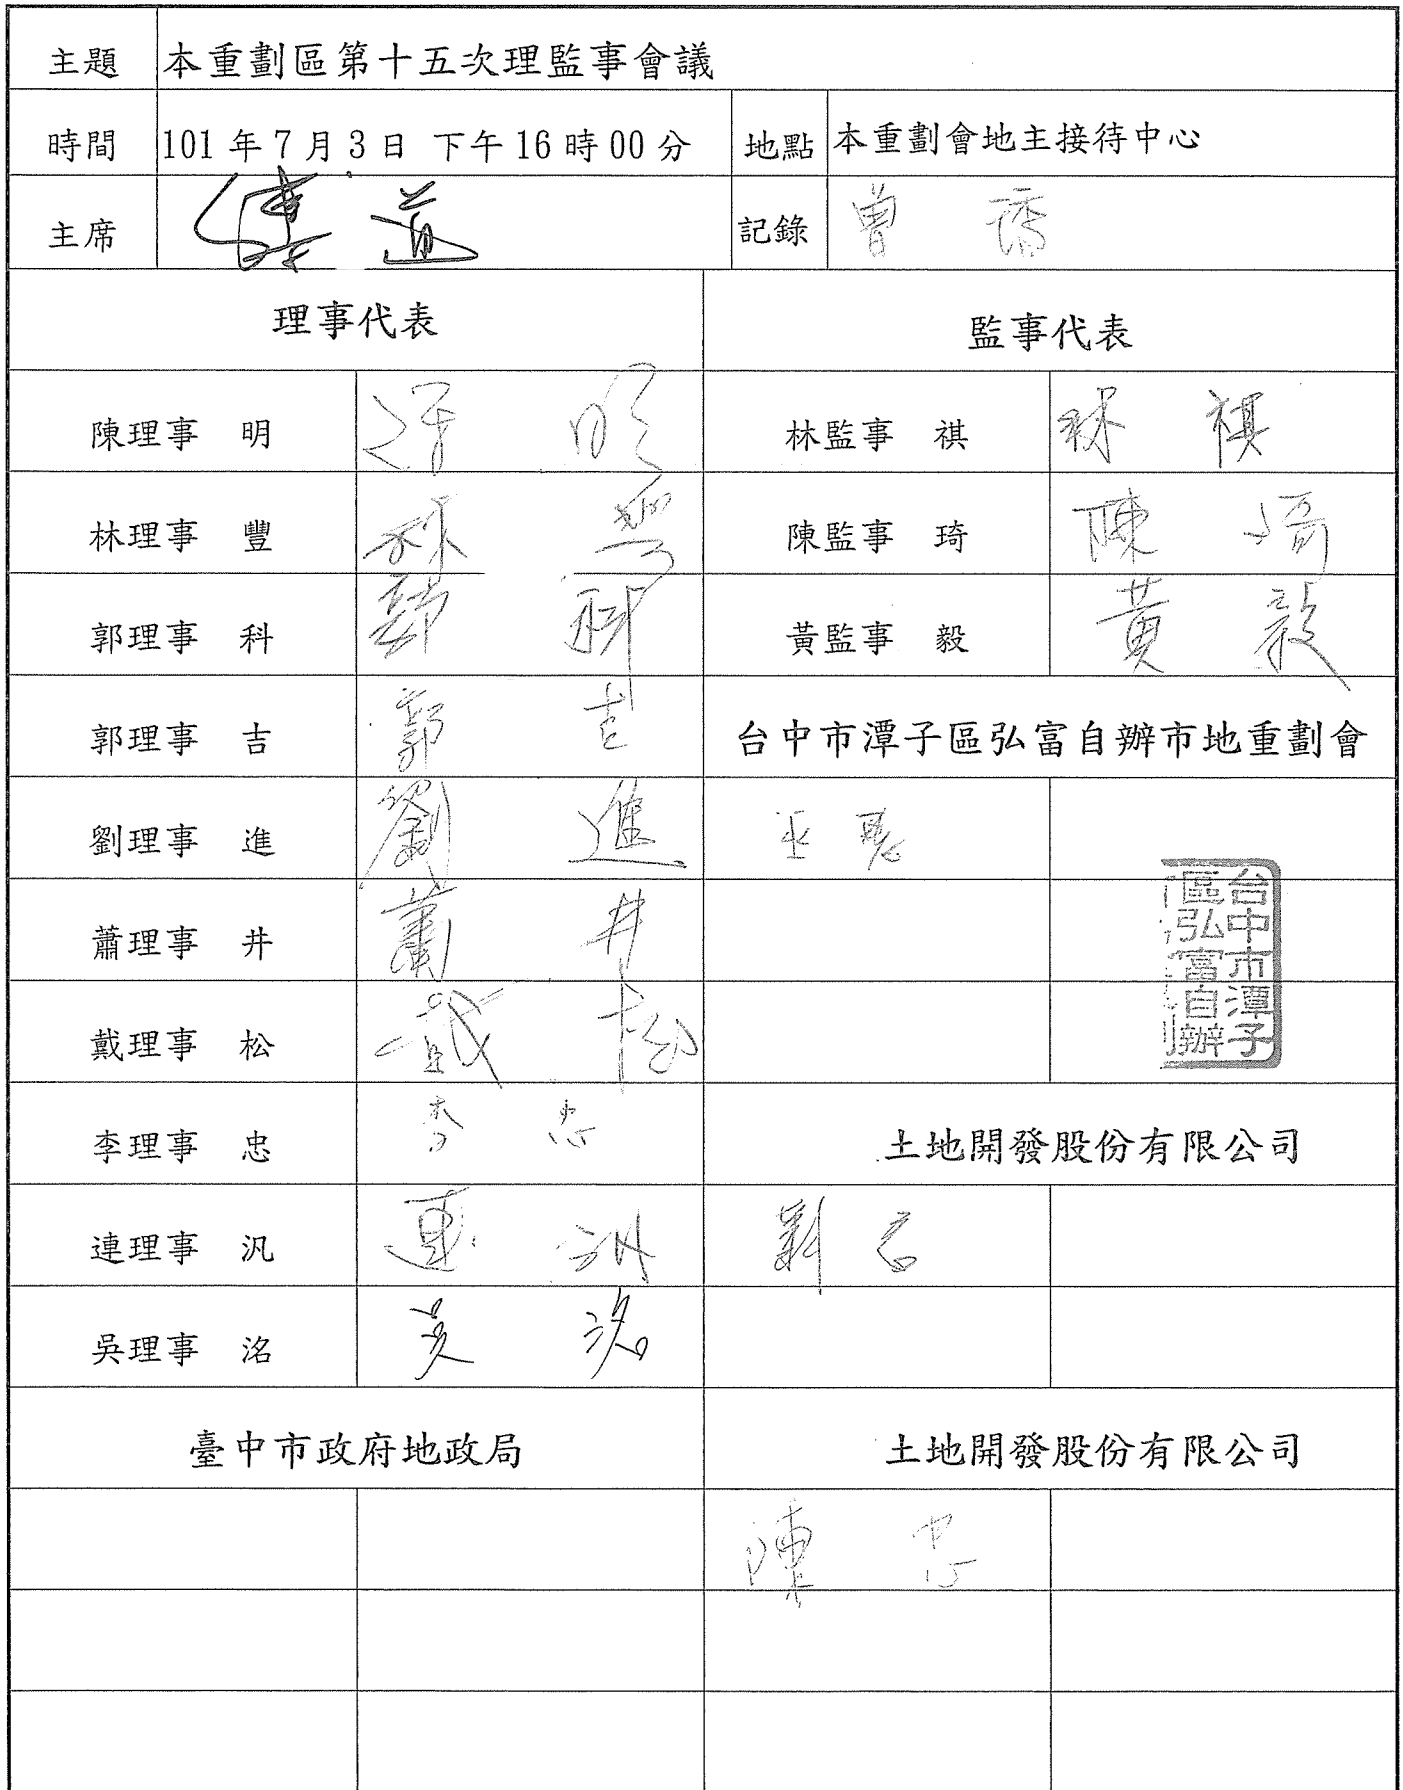 主題 本重劃區第十五次理監事會議
時間 101年7月3日 下午16時00分 地點 本重劃會地主接待中心
主席 記錄 曾
理事代表 監事代表
陳理事 明 明 林監事 祺 林 祺
林理事 豐 林 陳監事 琦 陳 琦
郭理事 科 郭 科 黃監事 毅 黃 毅
郭理事 吉 郭 吉 台中市潭子區弘富自辦市地重劃會
劉理事 進 劉 進
蕭理事 井 蕭 井
戴理事 松 戴 松
台中市潭子
區弘富自辦
李理事 忠 李 忠 土地開發股份有限公司
連理事 汎 連 劉
吳理事 洺 吳 洺
臺中市政府地政局 土地開發股份有限公司
陳 忠